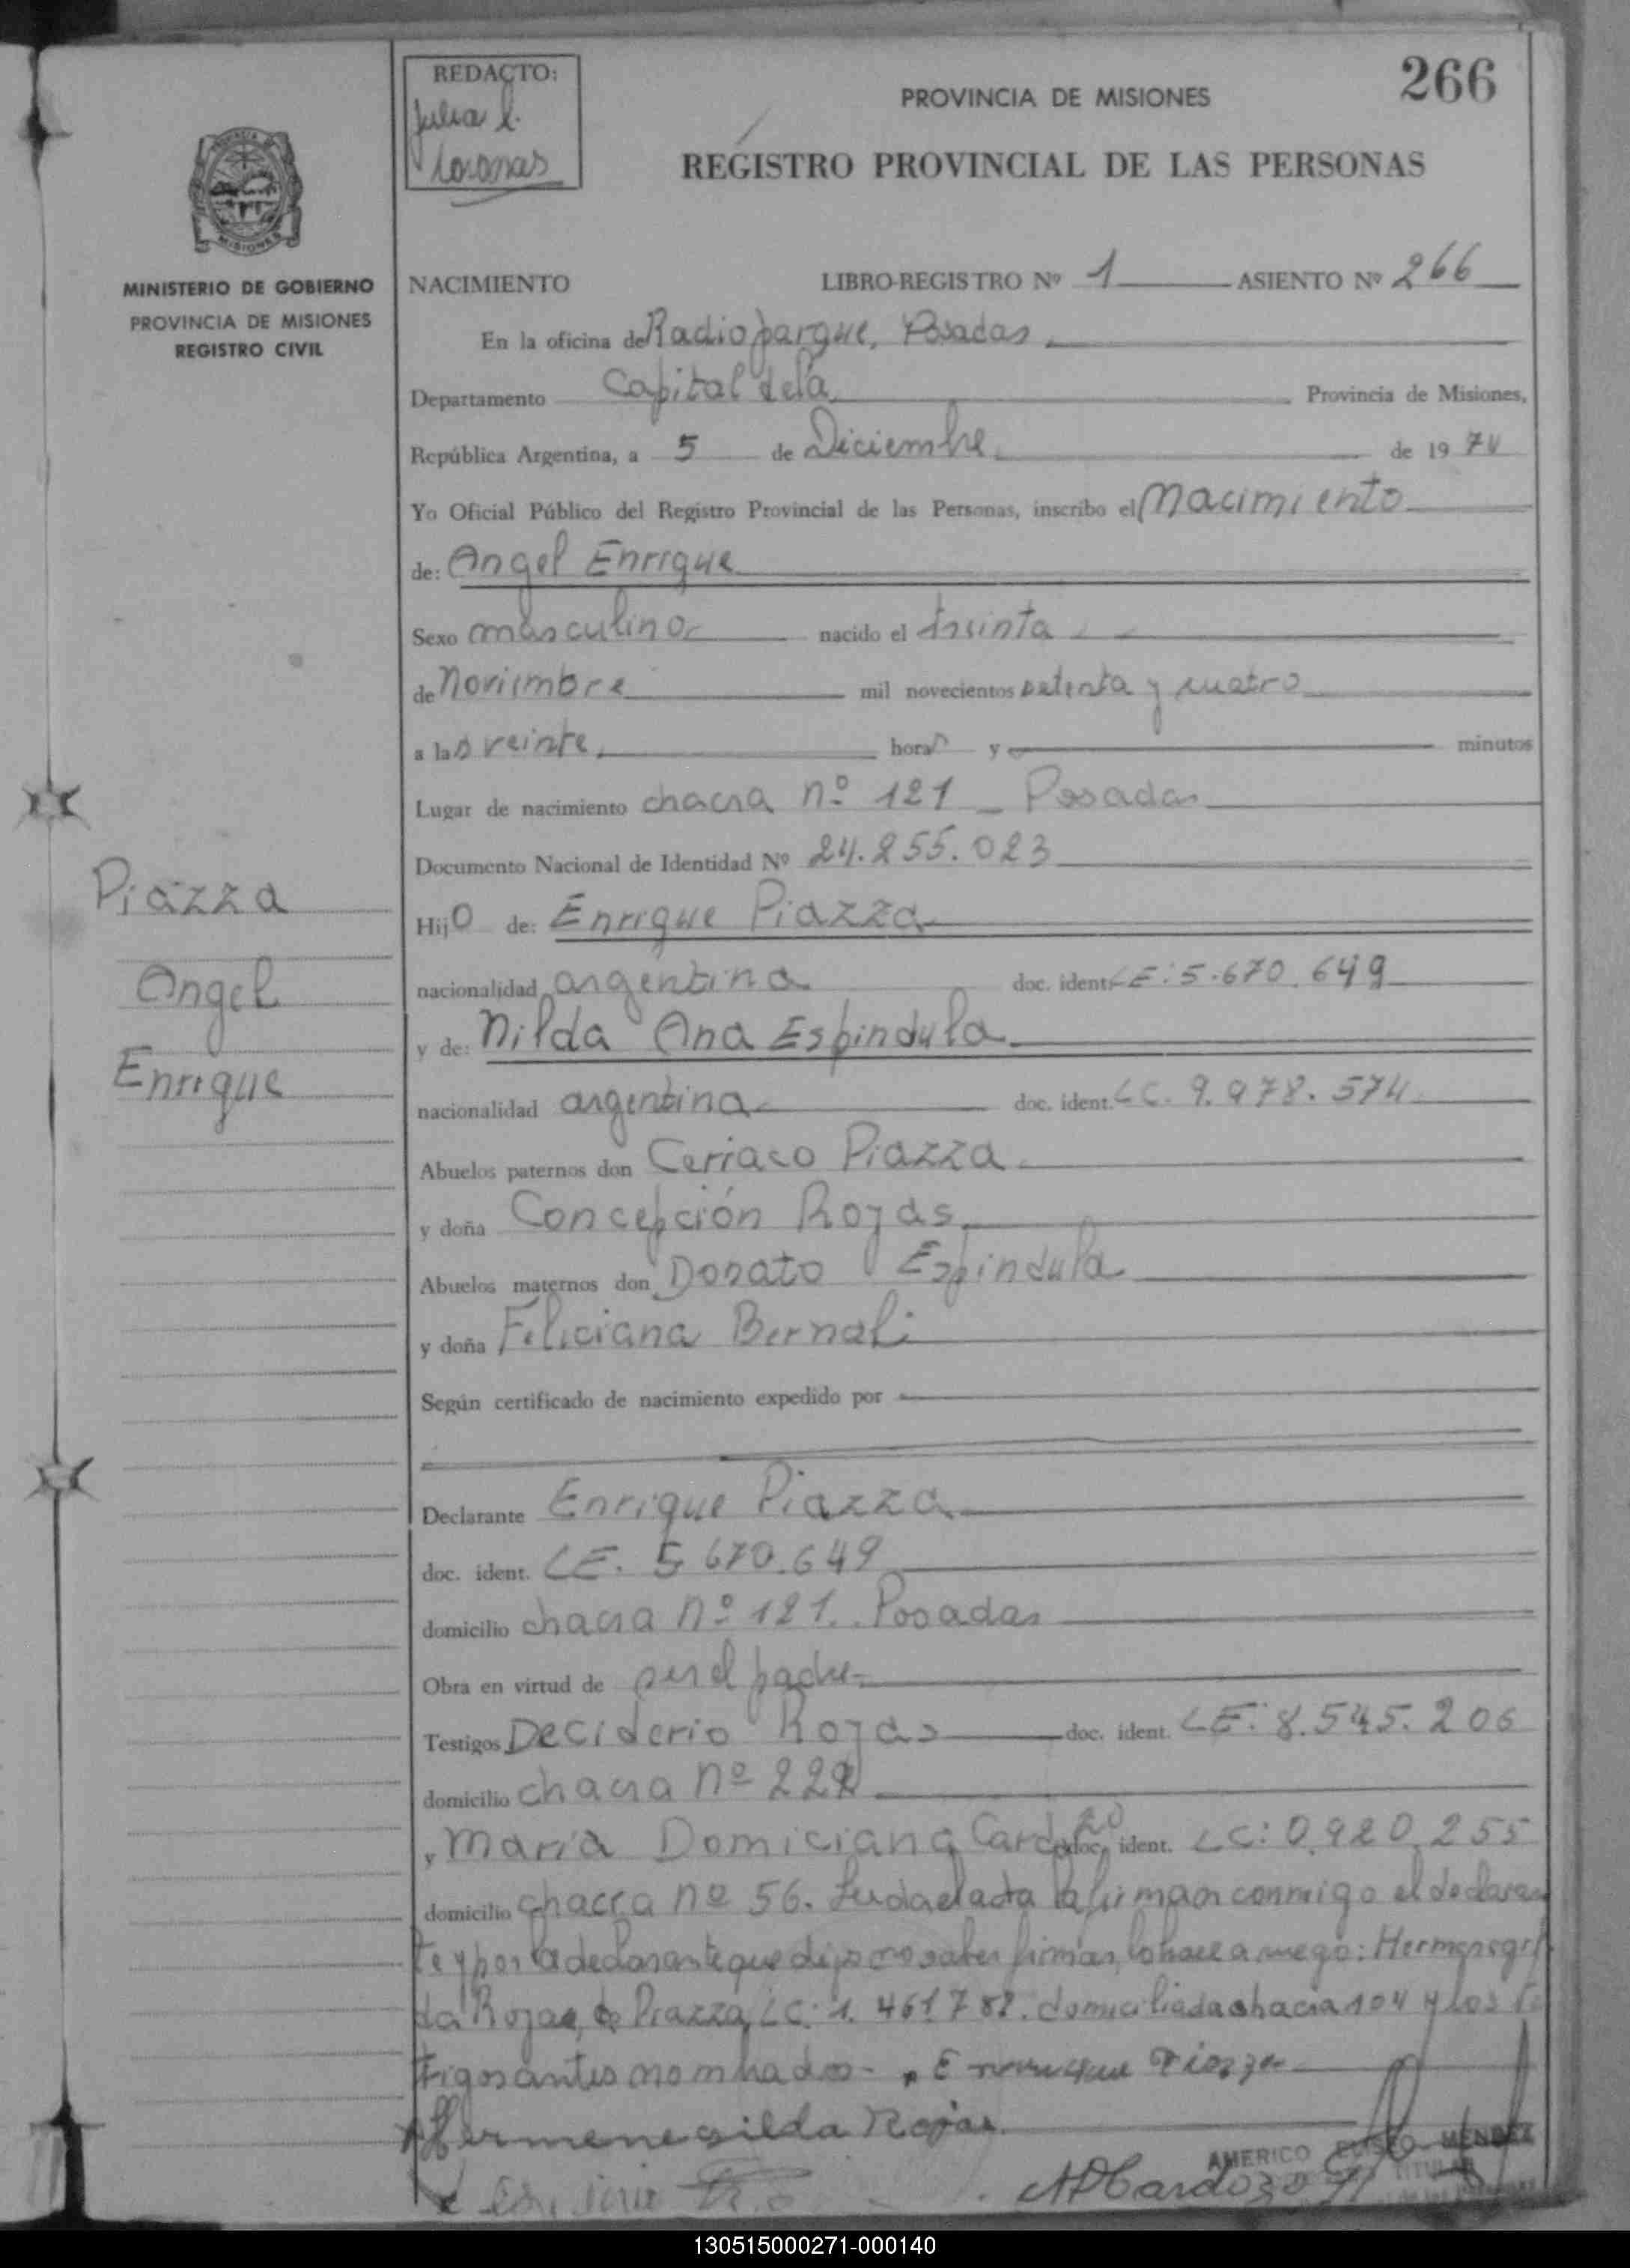 266
REDACTO:
Julia l.
PROVINCIA DE MISIONES
REGISTRO PROVINCIAL DE LAS PERSONAS
MISIONES
MINISTERIO DE GOBIERNO
PROVINCIA DE MISIONES
REGISTRO CIVIL
NACIMIENTO LIBRO-REGISTRO Nº 1 ASIENTO Nº 266
En la oficina de Radioparque, Posadas
Departamento Capital dela Provincia de Misiones,
República Argentina, a 5 de Diciembre de 19 74
Yo Oficial Público del Registro Provincial de las Personas, inscribo el Nacimiento
de: Angel Enrique
Sexo masculino nacido el treinta
de Noviembre mil novecientos setenta y cuatro
a las veinte, horas y minutos
Lugar de nacimiento chacra nº 121 - Posadas
Documento Nacional de Identidad Nº 24.255.023
Piazza
Angel
Enrique
Hijo de: Enrique Piazza
nacionalidad argentina doc. ident. LE: 5.670.649
y de: Nilda Ana Espindula
nacionalidad argentina doc. ident. LC. 9.978.574
Abuelos paternos don Ceriaco Piazza
y doña Concepción Rojas
Abuelos maternos don Donato Espindula
y doña Feliciana Bernal
Según certificado de nacimiento expedido por
Declarante Enrique Piazza
doc. ident. LE. 5.670.649
domicilio chacra nº 121. Posadas
Obra en virtud de ser el padre
Testigos Deciderio Rojas doc. ident. LE: 8.545.206
domicilio chacra nº 222
y María Domiciana Cardozo doc. ident. LC: 0.920.255
domicilio chacra nº 56. Leida el acta la firman conmigo el declaran
te y por la declarante que dijo no saber firmar, lo hace a ruego: Hermenegil
da Rojas de Piazza, LC: 1.461.782. domiciliada chacra 104 y los te
tigos antes nombrados - Enrrique Piazza
Hermenegilda Rojas
MDCardozo
AMERICO ELISEO MENDEZ
TITULAR
130515000271-000140